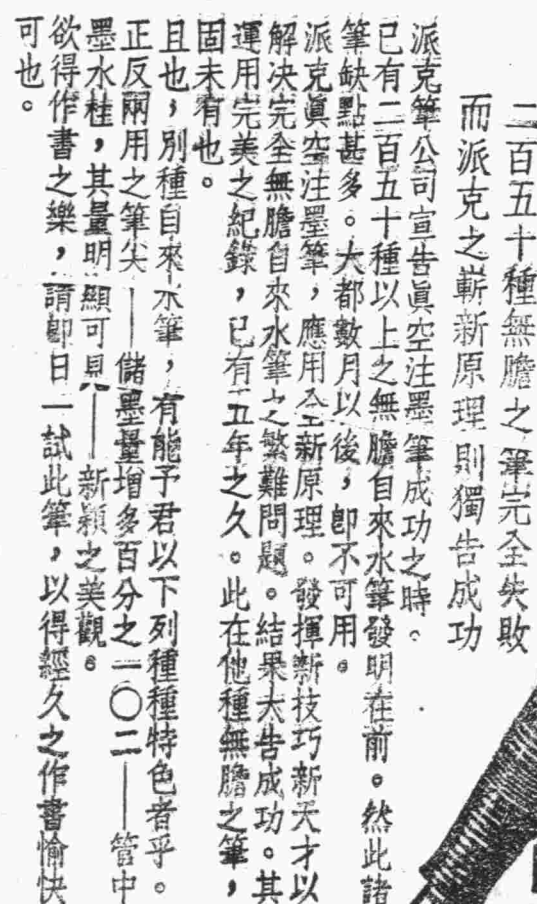 二百五十種無膽之筆完全失敗
而派克之嶄新原理則獨告成功
派克筆公司宣告眞空注墨筆成功之時。
已有二百五十種以上之無膽自來水筆發明在前。然此諸
筆缺點甚多。大都數月以後，卽不可用。
派克眞空注墨筆，應用全新原理。發揮新技巧新天才以
解決完全無膽自來水筆之繁難問題。結果大告成功。其
運用完美之紀錄，已有五年之久。此在他種無膽之筆，
固未有也。
且也，別種自來水筆，有能予君以下列種種特色者乎。
正反兩用之筆尖——儲墨量增多百分之一〇二——管中
墨水柱，其量明顯可見——新穎之美觀。
欲得作書之樂，請卽日一試此筆，以得經久之作書愉快
可也。